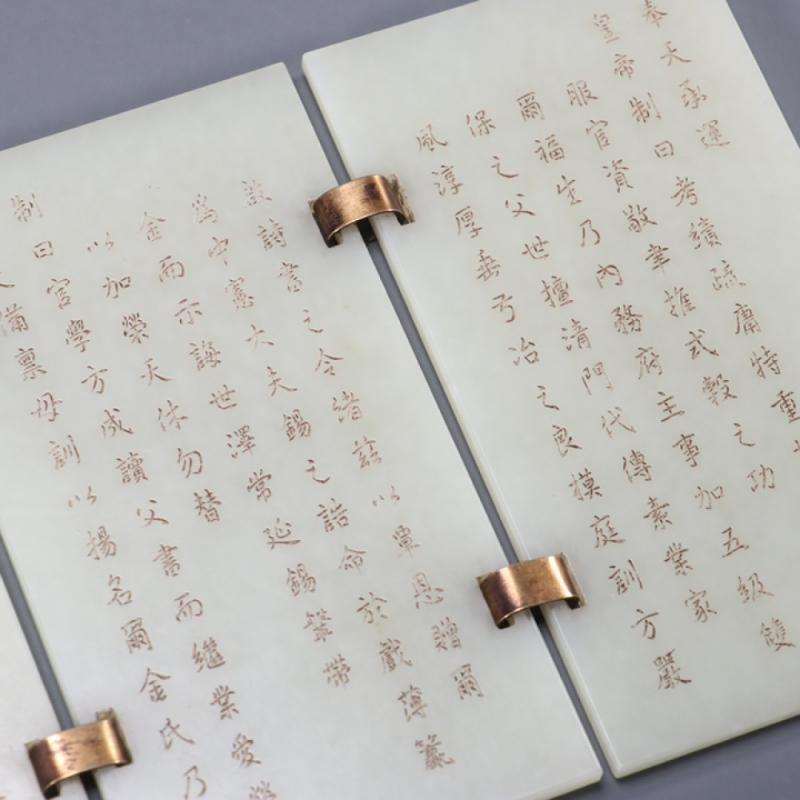 奉天承運
皇帝制曰考績疏庸特重
服官資敬聿推式穀之功
爾福生乃內務府主事加五級雙
保之父世擅清門代傳素業家
風淳厚垂弓冶之良模庭訓方嚴
啟詩書之令緒茲以覃恩贈爾
為中憲大夫錫之誥命於戲薄籯
金而示誨世澤常延錫鞶帶
以加榮天休勿替
制曰官學方成讀父書而繼業愛
備稟母訓以揚名爾金氏乃